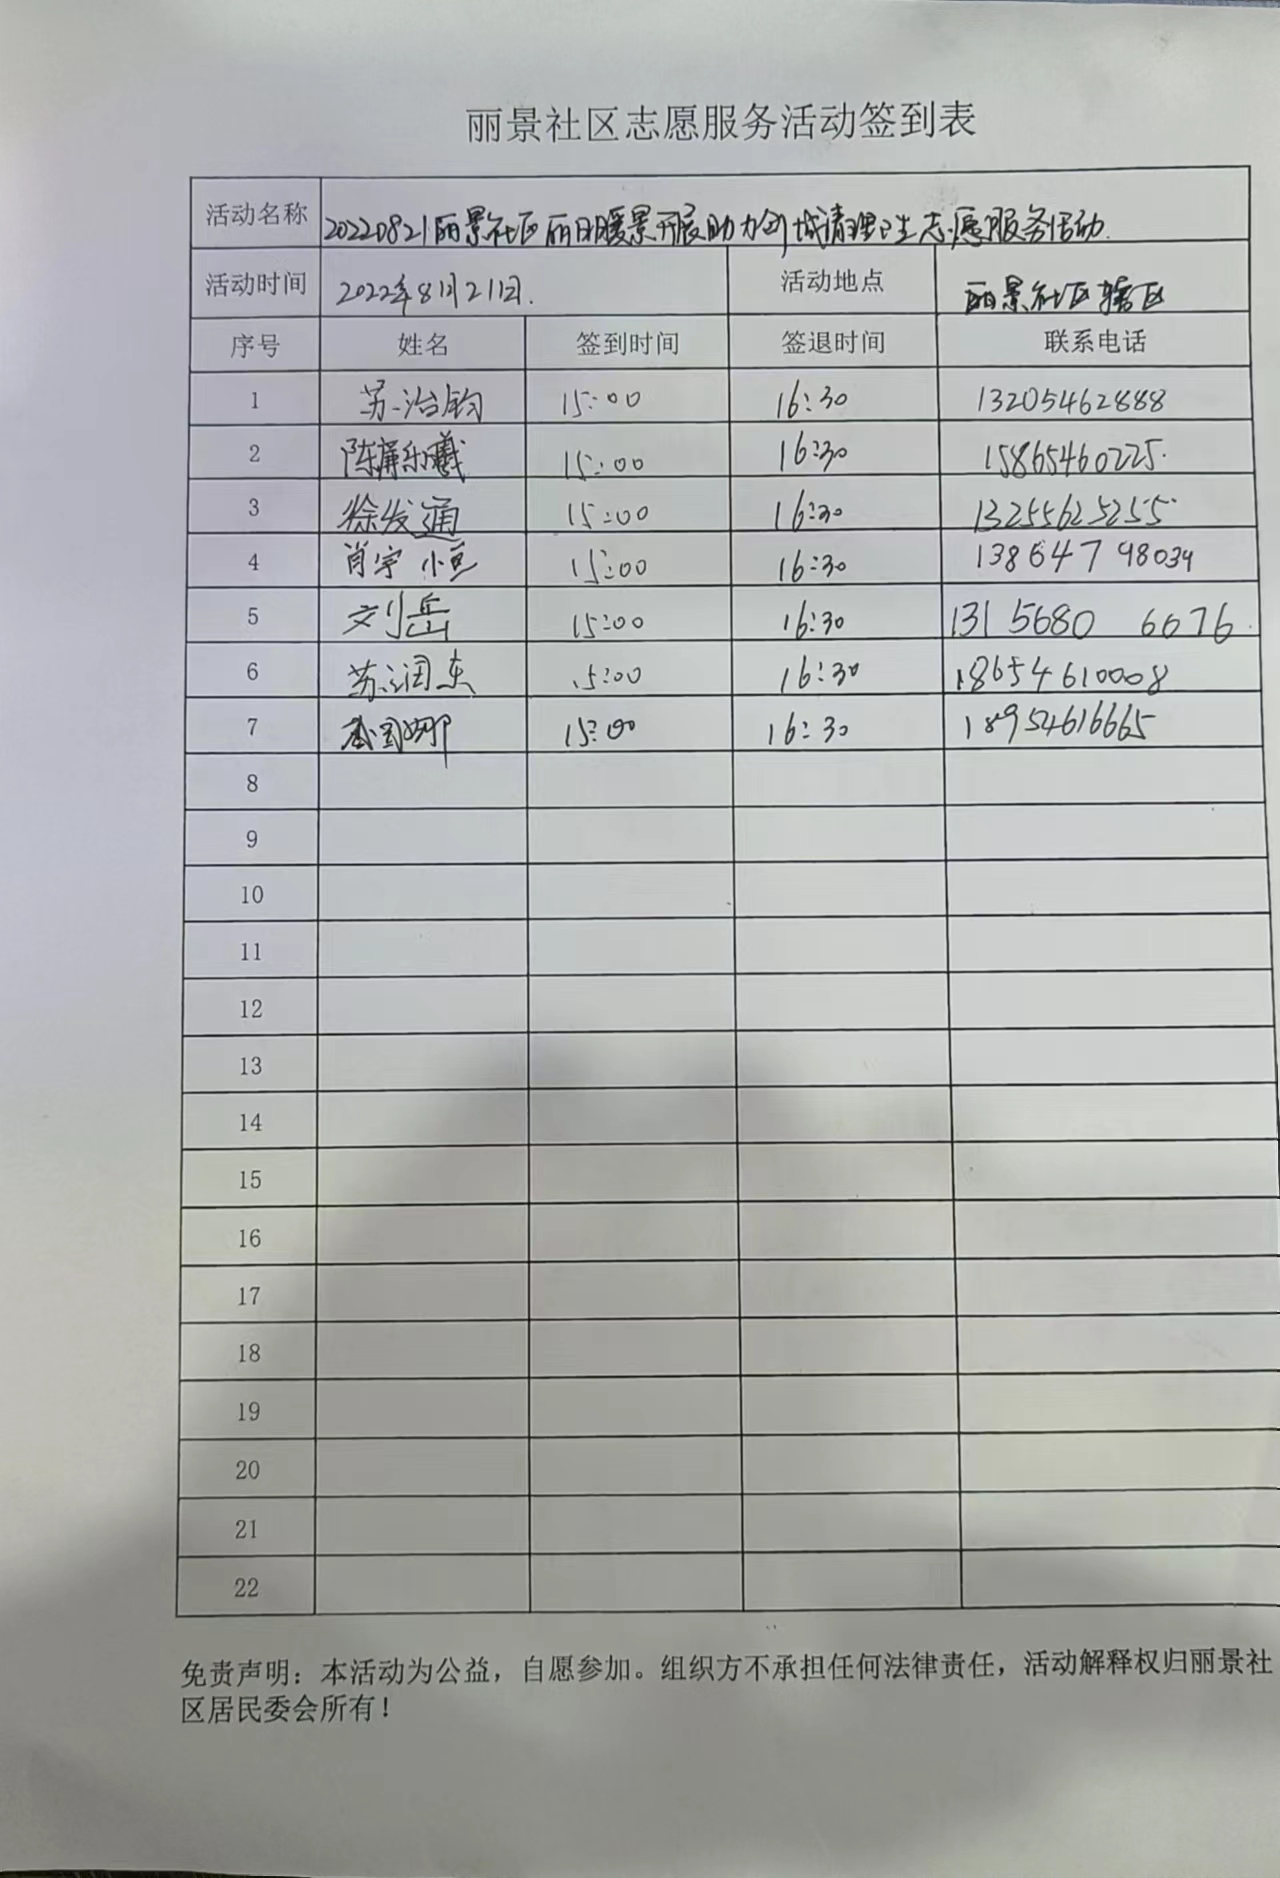 丽景社区志愿服务活动签到表
活动名称 20220821丽景社区丽日暖景开展助力创城清理卫生志愿服务活动.
活动时间 2022年8月21日. 活动地点 丽景社区辖区
序号 姓名 签到时间 签退时间 联系电话
1 苏治钧 15:00 16:30 13205462888
2 陈屏乐曦 15:00 16:30 15865460225.
3 徐发通 15:00 16:30 13255625255
4 肖宇恒 15:00 16:30 13864798034
5 刘岳 15:00 16:30 131 5680 6676.
6 苏润东 15:00 16:30 18654610008
7 15:00 16:30 18954616665
8
9
10
11
12
13
14
15
16
17
18
19
20
21
22
免责声明：本活动为公益，自愿参加。组织方不承担任何法律责任，活动解释权归丽景社
区居民委会所有！